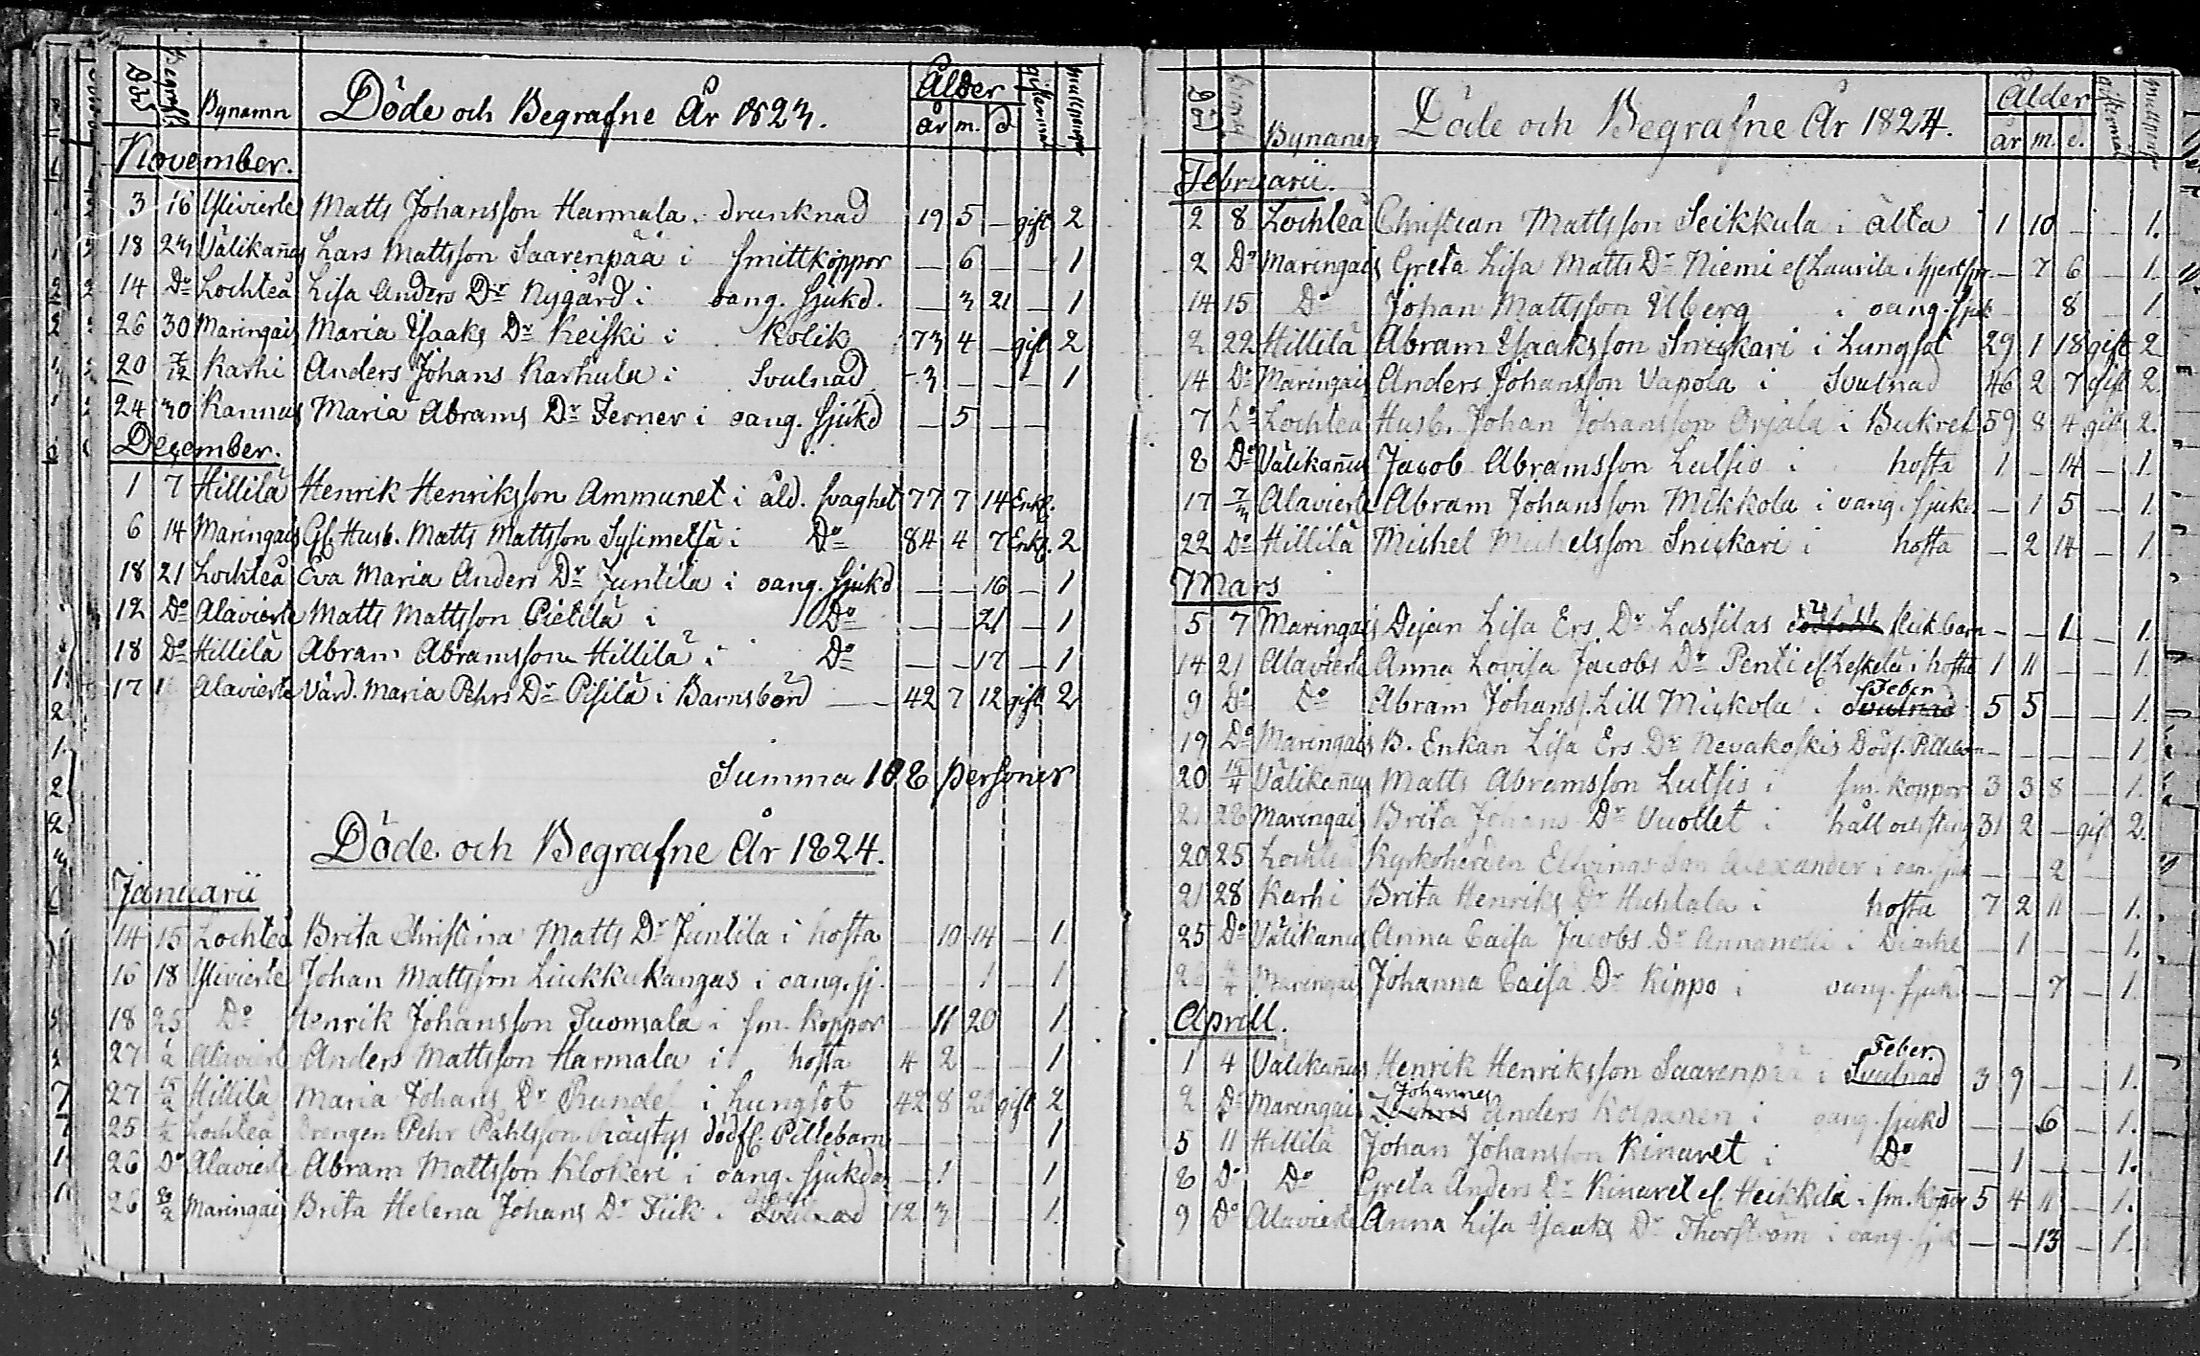 Död Begrafv. Bynamn Döde och Begrafne År 1823. Ålder år m. d.
November.
3 16 Ylivierle Matts Johansson Harmala. drunknad 19 5 — gift 2
18 23 Välikañus Lars Mattsson Saarenpää i smittkoppor — 6 — — 1
14 Do Lochteå Lisa Anders Dr Nygård i oang. sjukd. — 3 21 — 1
26 30 Maringais Maria Ysaaks Dr Keiski i Kolik 73 4 — gift 2
20 7/12 Karhi Anders Johans Karhula i Svulnad 3 — — 1
24 30 Kannus Maria Abrams Dr Ferner i oang. sjukd — 5 — —
December.
1 7 Hillilä Henrik Henriksson Ammunet i åld. svaghet 77 7 14 Enkl.
6 14 Maringais Gl. Husb. Matts Mattsson Sysimetsä i Do 84 4 7 Enkl. 2
18 21 Lochteå Eva Maria Anders Dr Juntila i oang. sjukd — — 16 — 1
12 Do Alavierle Matts Mattsson Pietilä i Do — — 21 — 1
18 Do Hillilä Abram Abramsson Hillilä i Do — — 17 — 1
17 Alavierle Värd. Maria Pehrs Dr Pisilä i Barnsbörd — 42 7 12 gift 2
Summa 108 personer
Döde och Begrafne År 1824.
Januarii
14 15 Lochteå Brita Christina Matts Dr Juntila i hosta — 10 14 — 1.
16 18 Ylivierle Johan Mattsson Liukkukangas i oang. sj. — — 1 1
18 25 Do Henrik Johansson Tuomala i sm. koppor — 11 20 1.
27 1/2 Alavierle Anders Mattsson Harmala i hosta 4 2 — — 1
27 15/2 Hillilä Maria Johans Dr Rundel i Lungsot 42 8 gift 2
25 1/2 Lochteå Drengen Pehr Påhlsson Räystys dödf. Pillebarn — — — 1
26 Do Alavierle Abram Mattsson Klokeri i oang. sjukdo — 1 — 1
26 8/2 Maringais Brita Helena Johans Dr Fick i 12 3 — — 1.
Död Bynamn Döde och Begrafne År 1824. Ålder år m. d.
Februarii.
2 8 Lochteå Christian Mattsson Seikkula i ålta 1 10 — — 1.
2 Do Maringais Greta Lisa Matts Dr Niemi el Laurila i — 7 6 — 1.
14 15 Do Johan Mattsson Ulberg i oang. sjuk 8 1.
2 22 Hillilä Abram Ysaaksson Snickari i Lungsot 29 1 18 gift 2
14 Do Maringais Anders Johansson Vapola i Svulnad 46 2 7 gift 2.
7 Do Lochteå Husb. Johan Johansson Orjala i Bukref 59 8 4 gift 2.
8 Do Välikañus Jacob Abramsson Lutsio i hosta 1 — 14 — 1.
17 7/3 Alavierle Abram Johansson Mikkola i oang. sjukd — 1 5 — 1.
22 Do Hillilä Michel Michelsson Snickari i hosta — 2 14 — 1.
Mars
5 7 Maringais Dejan Lisa Ers. Dr Lassilas flickbarn — — 1 — 1.
14 21 Alavierle Anna Lovisa Jacobs Dr Penti el Leskelä i hosta 1 11 — — 1.
9 Do Do Abram Johanss. Lill Mickola i Svulnad Feber 5 5 — — 1.
19 Do Maringais B. Enkan Lisa Ers. Dr Nevakoskis Dödf. Pillebarn — — — — 1.
20 15/4 Välikañus Matts Abramsson Lutsis i sm. koppor 3 3 8 — 1.
21 28 Maringais Brita Johans Dr Vuollet i håll och sting 31 2 — gift 2.
20 25 Lochteå Kyrkoherden Elfvings Son Alexander i — — 2
21 28 Karhi Brita Henriks Dr Huhtala i hosta 7 2 11 — 1.
25 Do Välikanus Anna Caisa Jacobs Dr Annanolli i — 1 — — 1.
26 4/4 Maringais Johanna Caisa Dr Kippo i oang. sjukd — — 7 — 1.
Aprill.
1 4 Välikañus Henrik Henriksson Saarenpää i Svulnad Feber. 3 9 — — 1.
2 Do Maringais Johannes Anders Kolpanen i oang. sjukd — — 6 — 1.
5 11 Hillilä Johan Johansson Kinaret i Do — 1 — — 1.
8 Do Do Greta Anders Dr Kinaret el. Heikkilä i sm. kopor 5 4 11 — 1.
9 Do Alavierle Anna Lisa Ysaaks Dr Thorström i oang. sju — — 13 — 1.